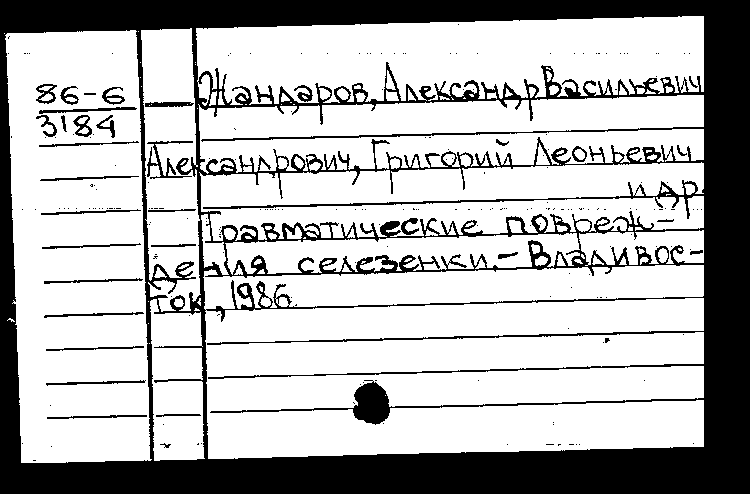 86-6
3184
Жандаров, Александр Васильевич
Александрович, Григорий Леоньевич
и др.
Травматические повреж-
дения селезенки.- Владивос-
ток, 1986